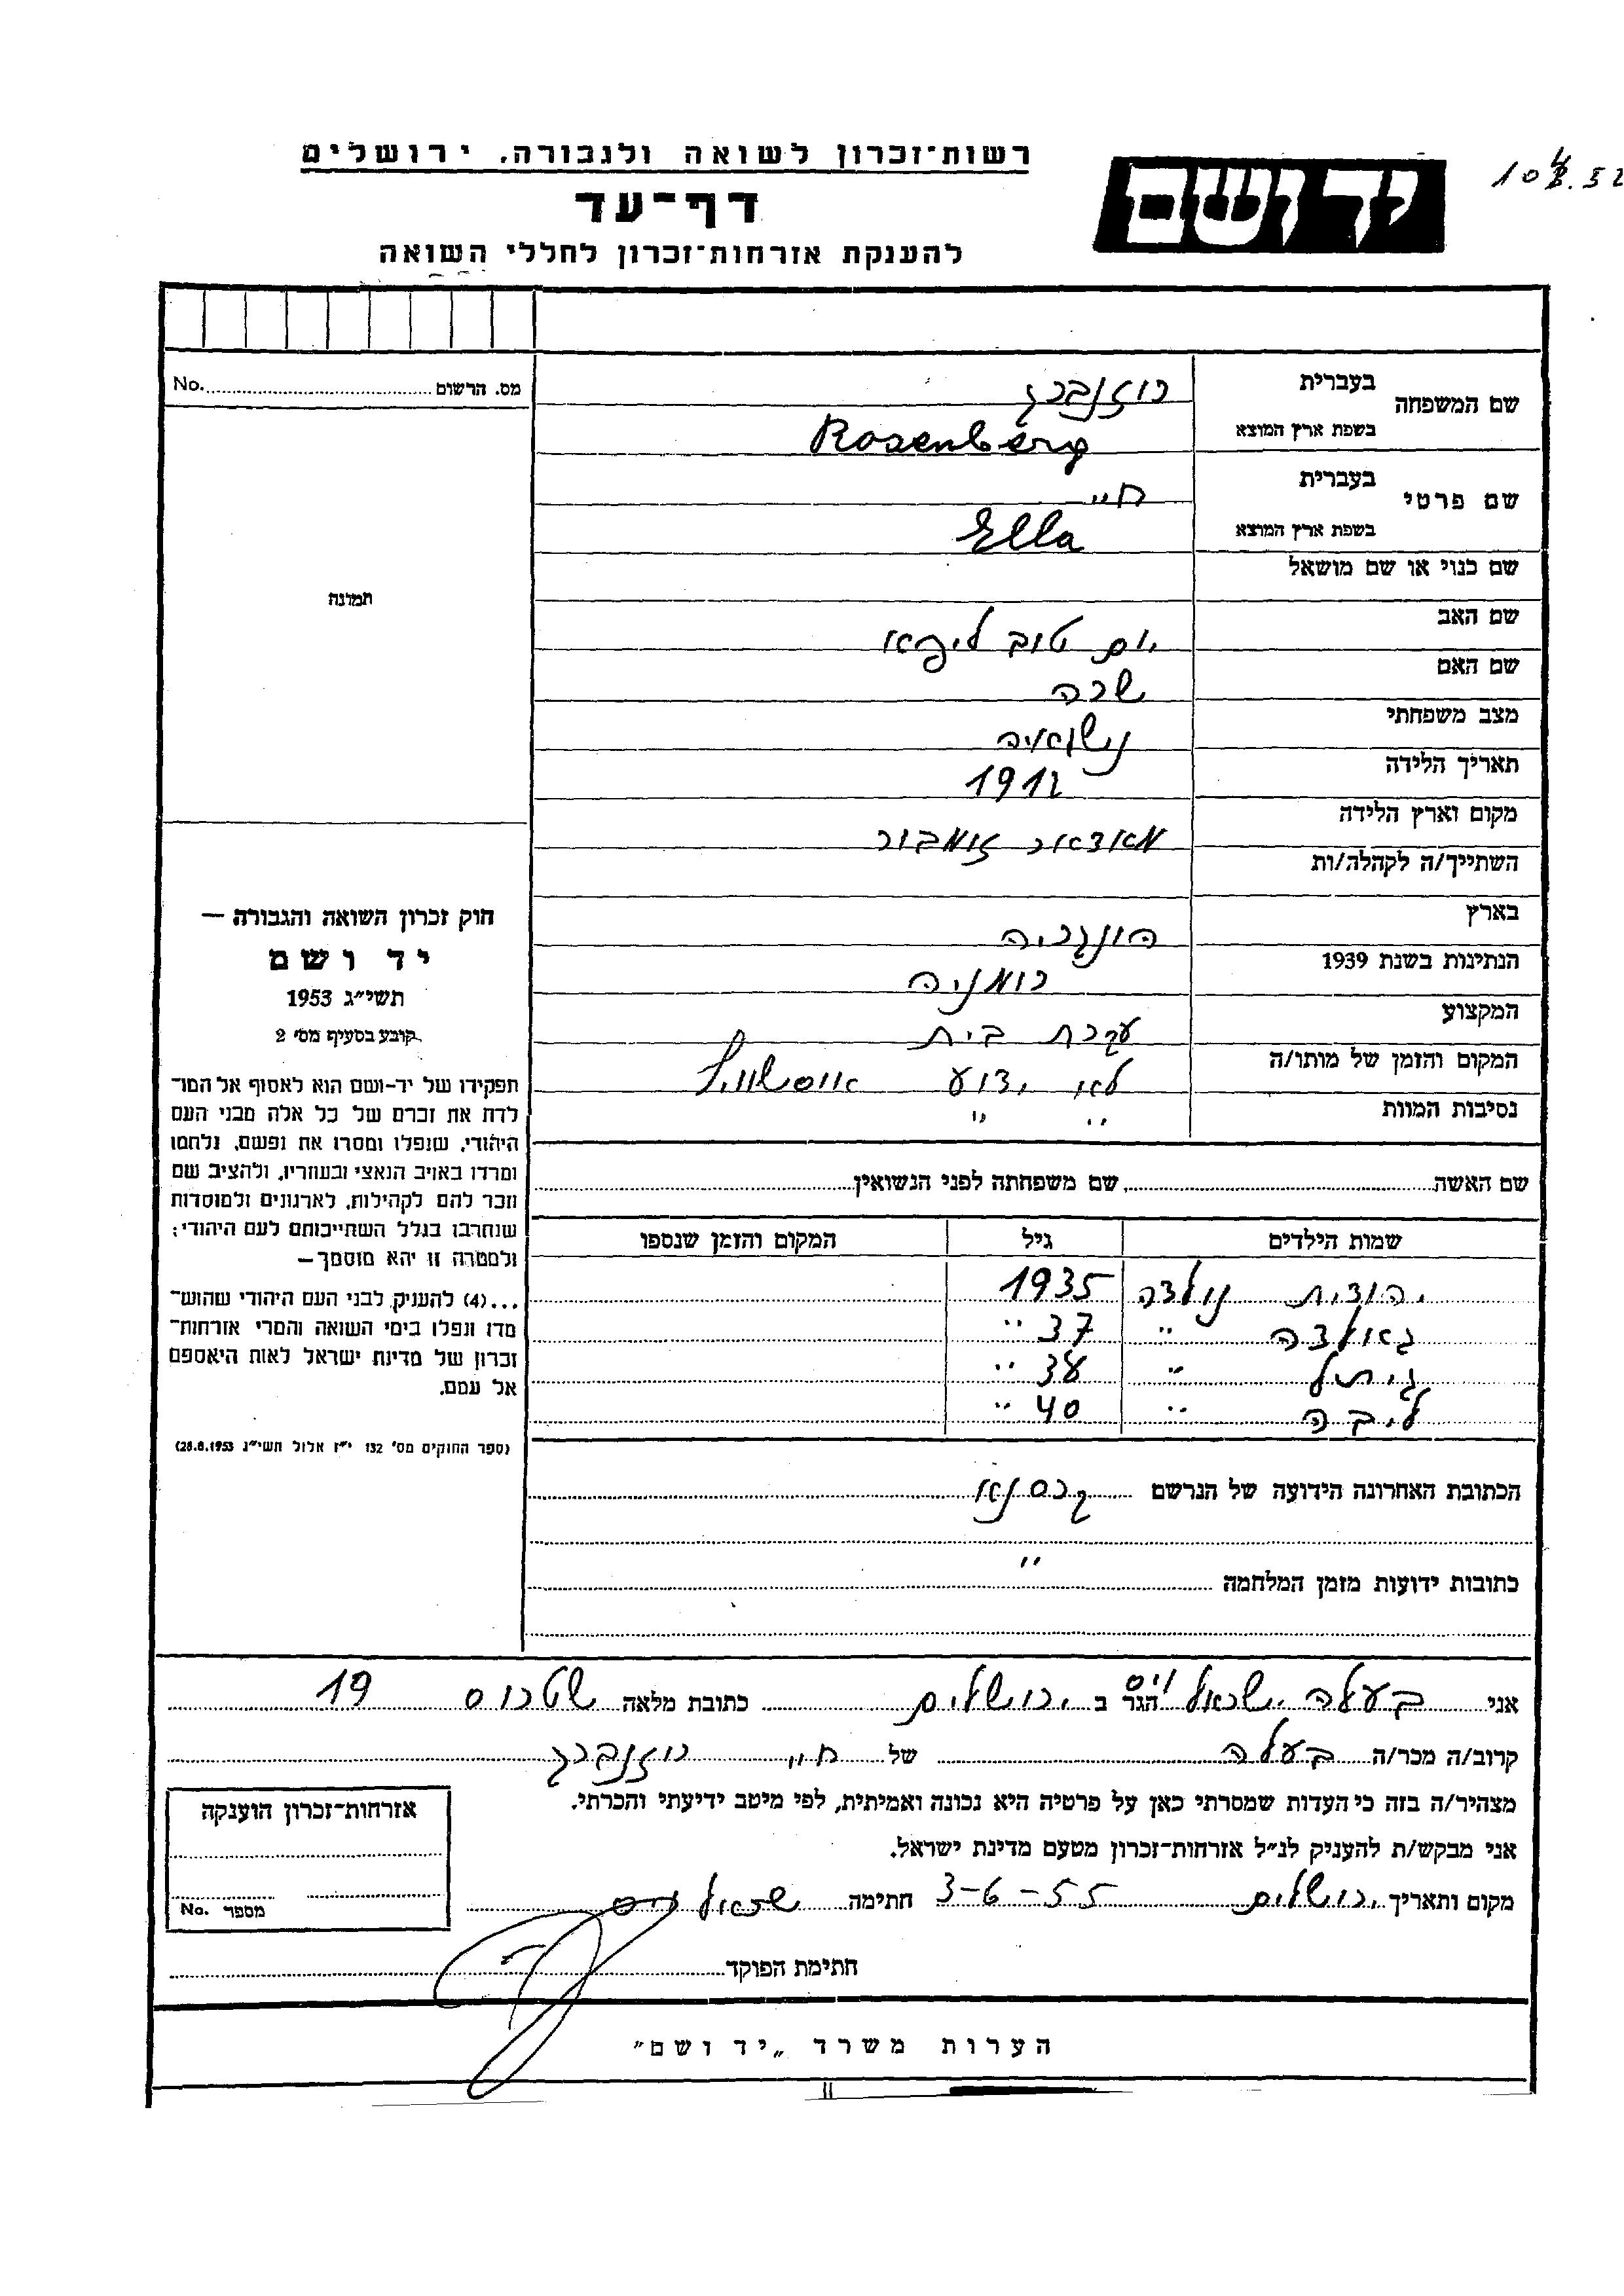 רשות־זכרון לשואה ולגבורה. ירושלים
דף־עד
להענקת אזרחות־זכרון לחללי השואה
יד ושם
מס. הרשום No.
שם המשפחה
בעברית רוזנברג
בשפת ארץ המוצא Rosenberg
שם פרטי
בעברית חיי
בשפת ארץ המוצא Ella
שם כנוי או שם מושאל
שם האב יום טוב ליפא
שם האם שרה
מצב משפחתי נישואיה
תאריך הלידה 1912
מקום וארץ הלידה
השתייך/ה לקהלה/ות
בארץ הונגריה
הנתינות בשנת 1939 רומניה
המקצוע עקרת בית
המקום והזמן של מותו/ה לא ידוע
נסיבות המוות " "
שם האשה שם משפחתה לפני הנשואין
שמות הילדים גיל המקום והזמן שנספו
יהודית נולדה 1935
גאולדה " 37 "
גיתל " 38 "
ליבה " 40 "
הכתובת האחרונה הידועה של הנרשם קרסנא
כתובות ידועות מזמן המלחמה "
תמונה
חוק זכרון השואה והגבורה —
יד ושם
תשי״ג 1953
קובע בסעיף מס׳ 2
תפקידו של יד-ושם הוא לאסוף אל המו־
לדת את זכרם של כל אלה מבני העם
היהודי, שנפלו ומסרו את נפשם, נלחמו
ומרדו באויב הנאצי ובעוזריו, ולהציב שם
וזכר להם לקהילות, לארגונים ולמוסדות
שנחרבו בגלל השתייכותם לעם היהודי;
ולמטרה זו יהא מוסמך —
...(4) להעניק לבני העם היהודי שהוש־
מדו ונפלו בימי השואה והמרי אזרחות־
זכרון של מדינת ישראל לאות היאספם
אל עמם.
(ספר החוקים מס׳ 132 י״ז אלול תשי״ג 28.8.1953)
אני בעלה ישראל וויס הגר ב ירושלים כתובת מלאה שטרוס 19
קרוב/ה מכר/ה בעלה של חיי רוזנברג
מצהיר/ה בזה כי העדות שמסרתי כאן על פרטיה היא נכונה ואמיתית, לפי מיטב ידיעתי והכרתי.
אני מבקש/ת להעניק לנ״ל אזרחות־זכרון מטעם מדינת ישראל.
מקום ותאריך ירושלים 3-6-55 חתימה ישראל וויס
חתימת הפוקד
אזרחות־זכרון הוענקה
מספר No.
הערות משרד „יד ושם״